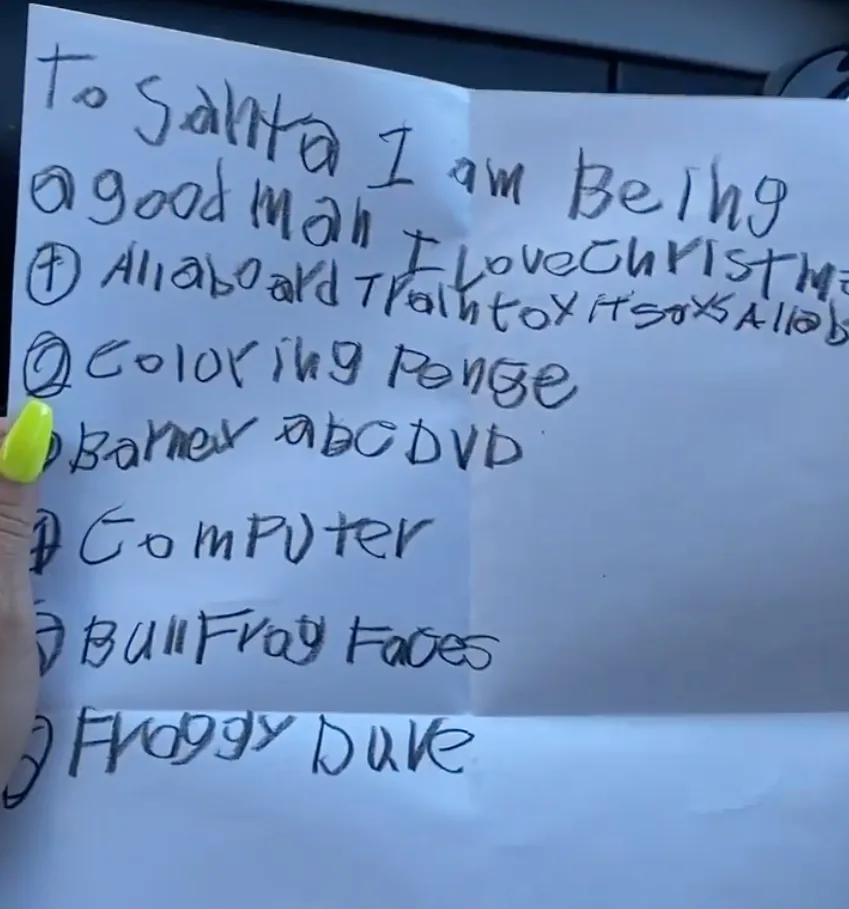 To Santa I am Being
a good man I Love Christm
① All aboard Train toy it says All ab
② Coloring Pengse
Barney abc DVD
Computer
Bull Frog Faces
Froggy Dave